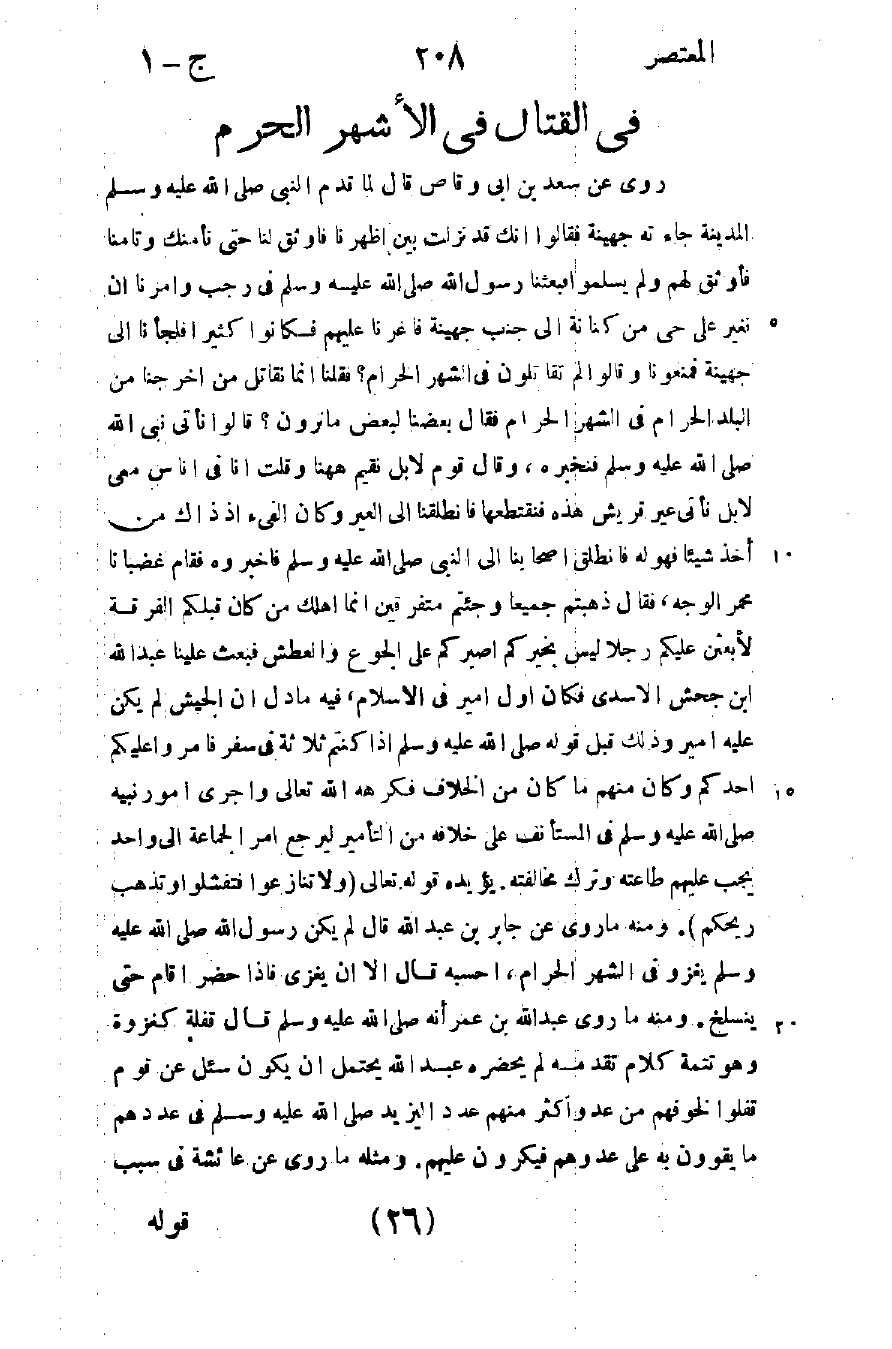 المعتصر ٢٠٨ ج - ١
فى القتال فى الأشهر الحرم
روى عن سعد بن ابى وقاص قال لما قدم النبى صلى الله عليه وسلم
المدينة جاءته جهينة فقالوا انك قد نزلت بين اظهرنا فاوثق لنا حتى نأمنك وتامنا
فأوثق لهم ولم يسلموا فبعثنا رسول الله صلى الله عليه وسلم فى رجب وامرنا ان
نغير على حى من كنانة الى جنب جهينة فاغرنا عليهم فكانوا كثيرا فلجأنا الى ٥
جهينة فمنعونا وقالوا لم تقاتلون فى الشهر الحرام؟ فقلنا انما نقاتل من اخرجنا من
البلد الحرام فى الشهر الحرام فقال بعضنا لبعض ماترون؟ قالوا نأتى نبى الله
صلى الله عليه وسلم فنخبره، وقال قوم لابل نقيم ههنا وقلت انا فى اناس معى
لابل نأتى عير قريش هذه فنقتطعها فانطلقنا الى العير وكان الفىء اذ ذاك من
أخذ شيئا فهوله فانطلق اصحابنا الى النبى صلى الله عليه وسلم فاخبروه فقام غضبانا ١٠
محمر الوجه، فقال ذهبتم جميعا وجئتم متفرقين انما اهلك من كان قبلكم الفرقة
لأبعثن عليكم رجلا ليس بخيركم اصبركم على الجوع والعطش فبعث علينا عبدالله
ابن جحش الاسدى فكان اول امير فى الاسلام، فيه مادل ان الجيش لم يكن
عليه امير وذلك قبل قوله صلى الله عليه وسلم اذا كنتم ثلاثة فى سفر فامروا عليكم
احدكم وكان منهم ما كان من الخلاف فكرهه الله تعالى واجرى امور نبيه ١٥
صلى الله عليه وسلم فى المستأنف على خلافه من التأمير ليرجع امر الجماعة الى واحد
يجب عليهم طاعته وترك مخالفته. يؤيده قوله تعالى (ولا تنازعوا فتفشلوا وتذهب
ريحكم). ومنه ماروى عن جابر بن عبد الله قال لم يكن رسول الله صلى الله عليه
وسلم يغزو فى الشهر الحرام، احسبه قال الا ان يغزى فاذا حضر اقام حتى
ينسلخ. ومنه ما روى عبدالله بن عمر أنه صلى الله عليه وسلم قال قفلة كغزوة ٢٠
وهو تتمة كلام تقد منه لم يحضره عبد الله يحتمل ان يكون سئل عن قوم
قفلوا لخوفهم من عدو أكثر منهم عدد اليزيد صلى الله عليه وسلم فى عددهم
ما يقوون به على عدوهم فيكرون عليهم. ومثله ما روى عن عائشة فى سبب
(٢٦) قوله